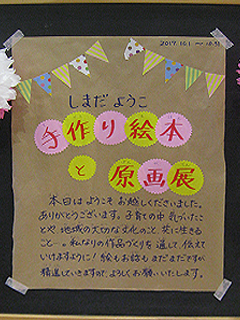 2017.10.1 ～ 10.31
しまだ ようこ
手作り絵本
と 原画展
本日は ようこそ お越しくださいました。
ありがとうございます。子育ての中 気づいたこ
とや 地域の大切な文化のこと、共に生きる
こと…。私なりの作品づくりを 通して 伝えて
いけますように！絵もお話も まだまだですが
精進していきますので、よろしくお願いいたします。